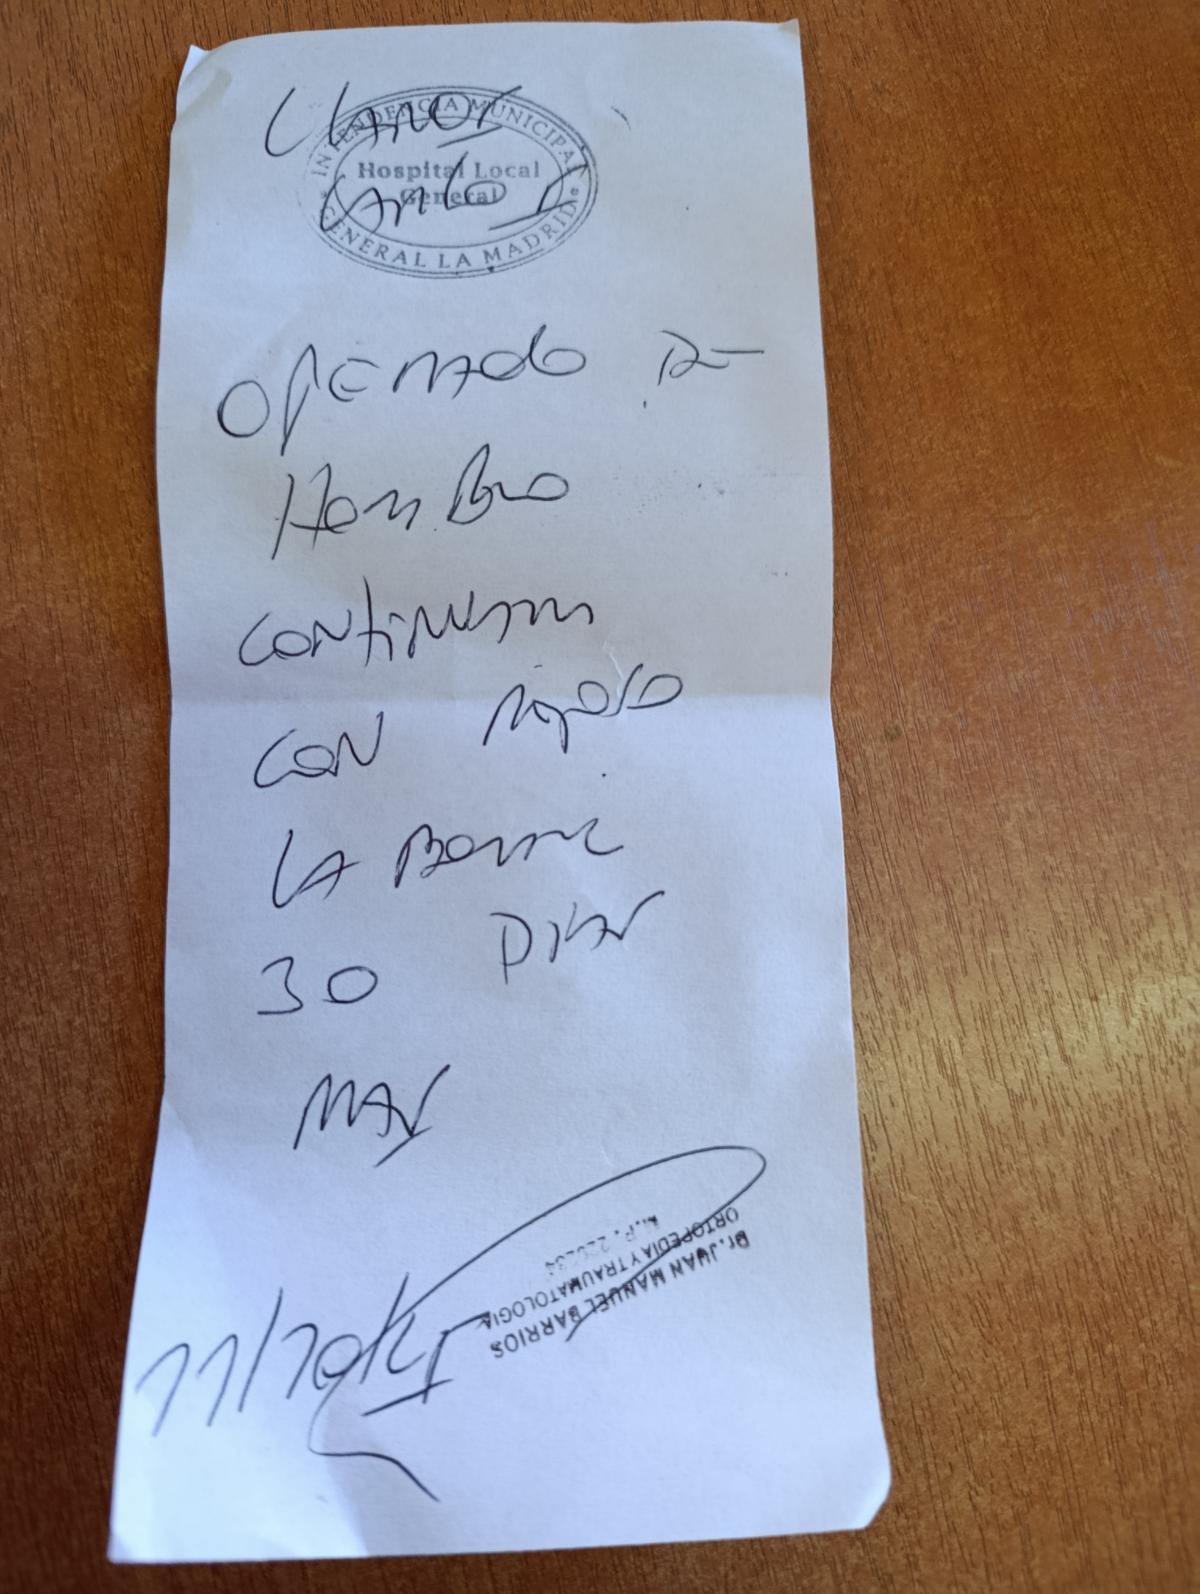 LLANOS
INTENDENCIA MUNICIPAL
Hospital Local
General
GENERAL LA MADRID
CARLOS
OPERADO DE
HOMBRO
CONTINUARA
CON REPOSO
LABORAL
30 DIAS
MAS
Dr. JUAN MANUEL BARRIOS
ORTOPEDIA Y TRAUMATOLOGIA